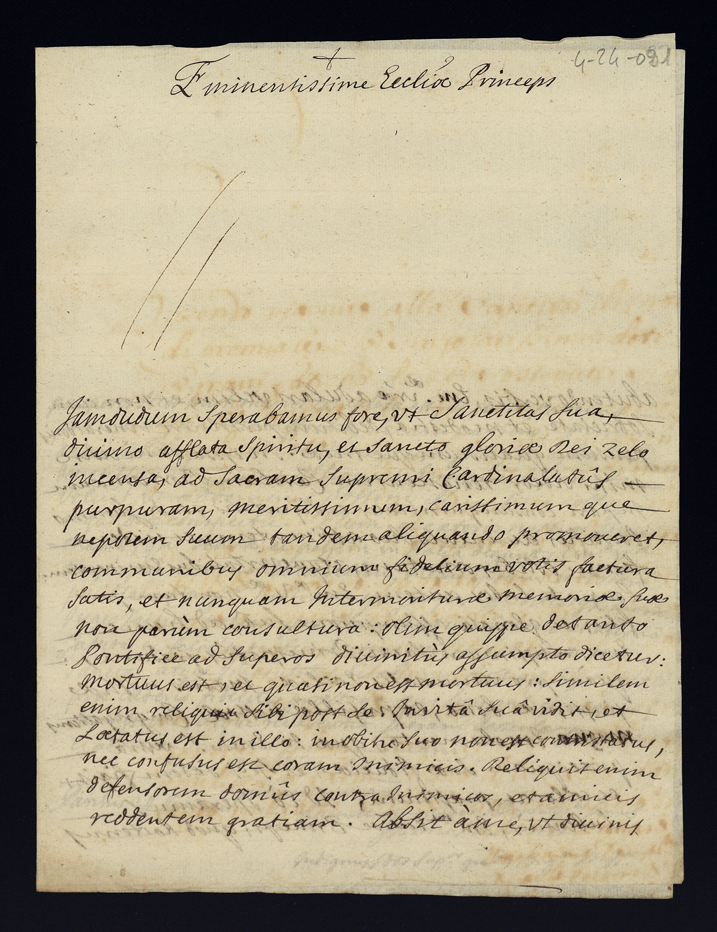 4-24-081
Eminentissime Eccliæ Princeps
Jamdudum sperabamus fore, vt Sanctitas sua,
diuino afflata spiritu, et sancto gloriæ Dei zelo
incensa, ad Sacram supremi Cardinalatûs
purpuram, meritissimum, carissimumque
nepotem suum tandem aliquando promoueret,
communibus omnium fidelium votis factura
satis, et nunquam Intermorituræ memoriæ suæ
non parùm consultura: olim quippe de tanto
Pontifice ad superos diuinitùs assumpto dicetur:
Mortuus est, et quasi non est mortuus: Similem
enim reliquit sibi post se. In vitâ suâ vidit, et
Lætatus est in illo: in obitu suo non est contristatus,
nec confusus est coram Inimicis. Reliquit enim
defensorem domûs contra Inimicos, et amicis
reddentem gratiam. Absit à me, vt diuinis